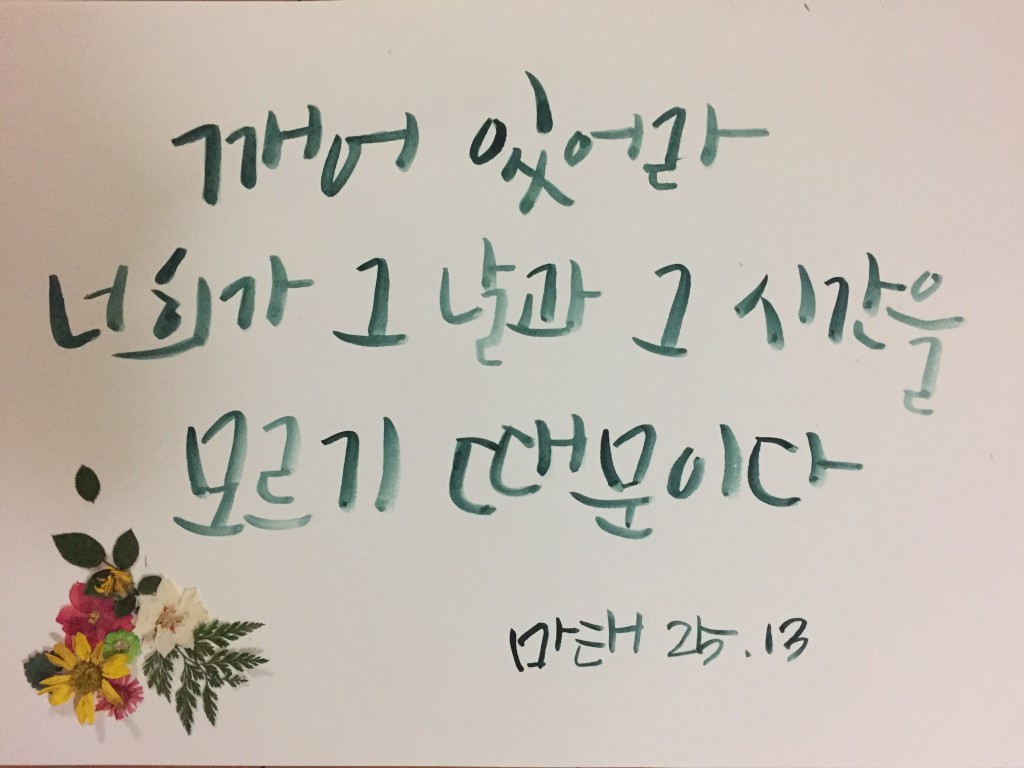 깨어 있어라
너희가 그 날과 그 시간을
모르기 때문이다
마태 25.13